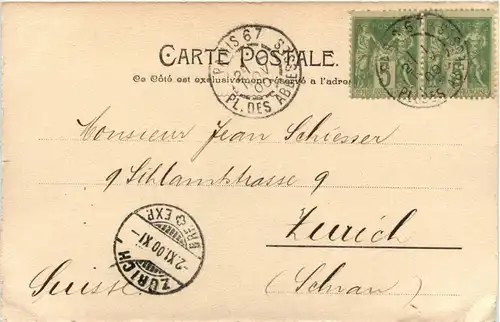 CARTE POSTALE.
Ce Côté est exclusivement réservé à l'adresse
PARIS 67
NOV
00
PL. DES ABBESSES
5
Monsieur Jean Schiesser
9 Sihlamtstrasse 9
Zurich
(Schran)
Suisse
ZÜRICH
-2.XI.00.XI-
BRF. EXP.